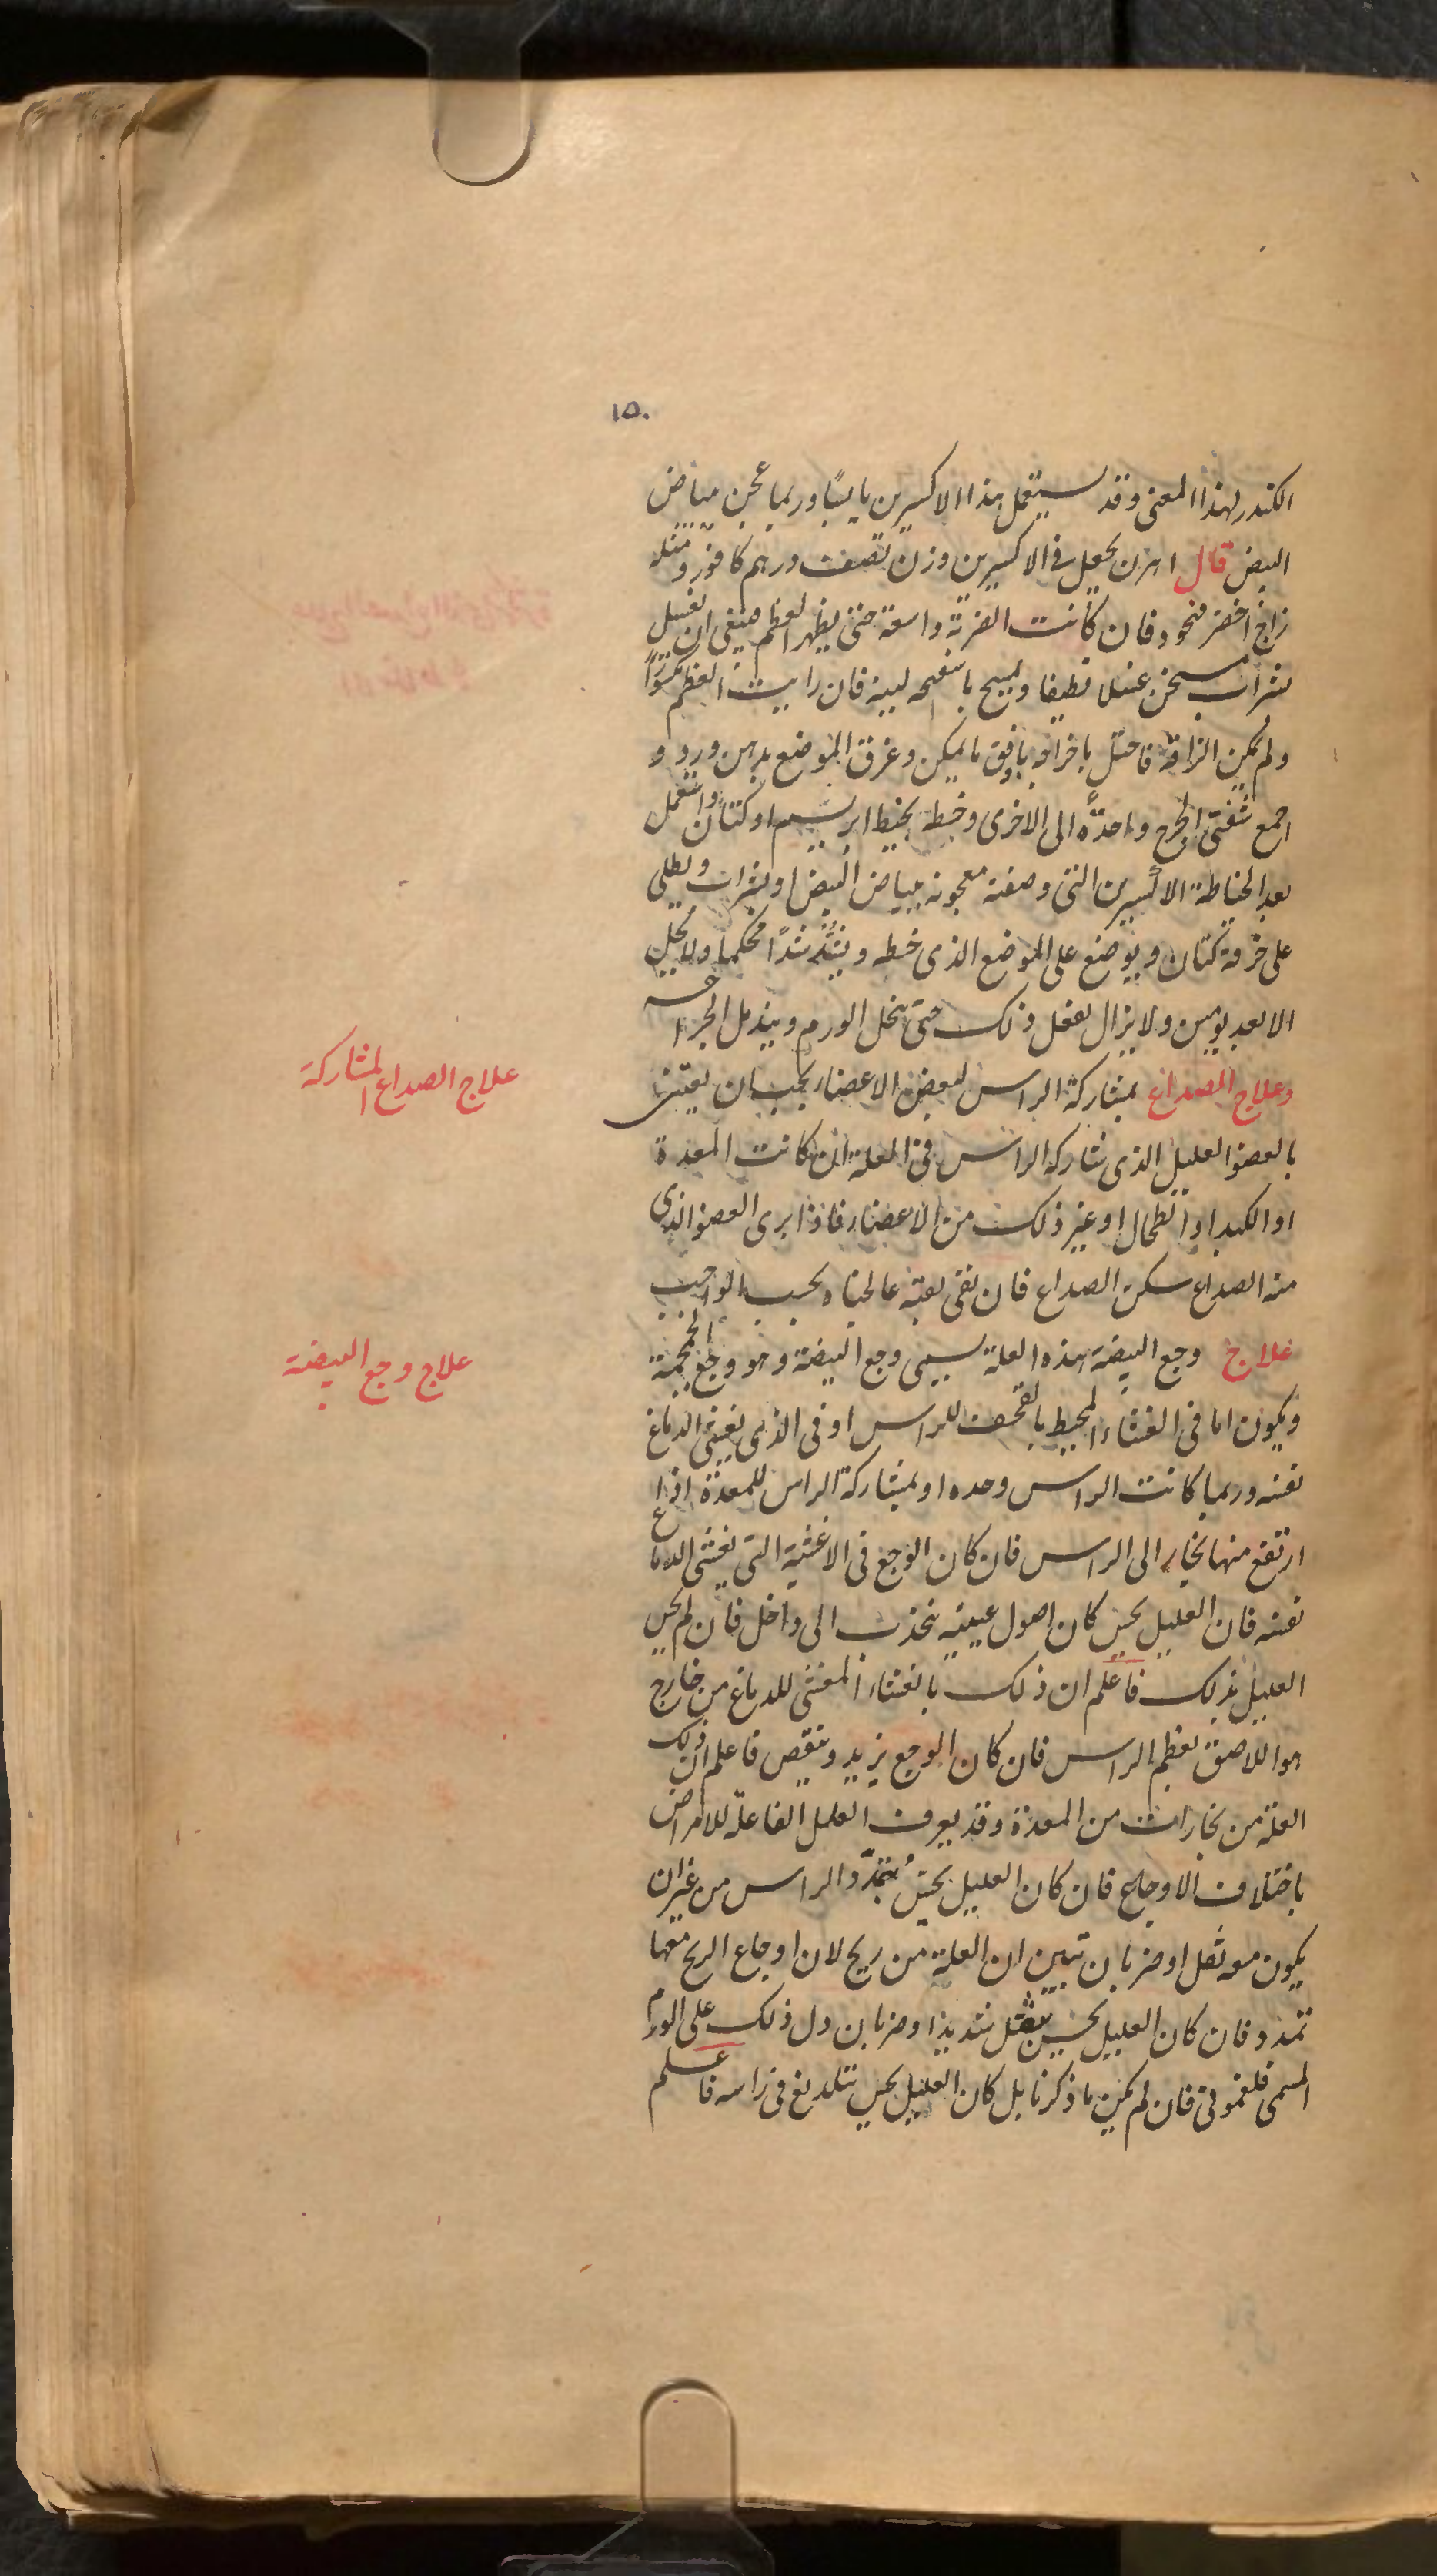 ١٥٠
الكندر لهذا المعنى وقد يستعمل هذا الاكسيرين يابسًا وربما عجن ببياض
البيض قال اهرن يجعل فى الاكسيرين وزن نصف درهم كافور ومثله
زاج اخضر فان كانت الضربة واسعة حتى يظهر العظم فينبغى ان يغسل
بشراب مسخن غسلا نظيفا ويمسح باسفنجه لينه فان رايت العظم مكسورًا
ولم يكن الزاقه فاحتل باخراجه بارفق ما يمكن وغرق الموضع بدهن ورد و
اجمع شفتى الجرح واحدة الى الاخرى وخيطه بخيط ابريسم او كتان واستعمل
بعد الخياطة الاكسيرين التى وصفته معجونه ببياض البيض او بشراب ويطلى
على خرقة كتان ويوضع على الموضع الذى خيطه ويشد شدًا محكما ولا يحل
الا بعد يومين ولا يزال يفعل ذلك حتى ينحل الورم ويندمل الجراحه
وعلاج الصداع بمشاركة الراس لبعض الاعضاء يجب ان يعتنى
علاج الصداع المشاركة
بالعضو العليل الذى شاركه الراس فى العلة ان كانت المعدة
او الكبد او الطحال او غير ذلك من الاعضاء فاذا برى العضو الذى
منه الصداع سكن الصداع فان بقى بقية عالجناه بحسب الواجب
علاج وجع البيضة هذه العلة يسمى وجع البيضة وهو وجع الجمجمة
علاج وجع البيضة
ويكون اما فى الغشاء المحيط بالقحف للراس او فى الذى يغشى الدماغ
نفسه وربما كانت الراس وحده او بمشاركة الراس للمعدة اذا
ارتفع منها بخار الى الراس فان كان الوجع فى الاغشية التى يغشى الدماغ
نفسه فان العليل يحس كان اصول عينيه ينجذب الى داخل فان لم يحس
العليل بذلك فاعلم ان ذلك بالغشاء المغشى للدماغ من خارج
هو اللاصق بعظم الراس فان كان الوجع يزيد وينقص فاعلم ان ذلك
العلة من بخارات من المعدة وقد يعرف العلل الفاعلة للامراض
باختلاف الاوجاع فان كان العليل يحس بتمدّد الراس من غير ان
يكون معه ثقل او ضربان تبين ان العلة من ريح لان اوجاع الريح معها
تمدد فان كان العليل يحس بثقل شديد او ضربان دل ذلك على الورم
المسمى فلغمونى فان لم يكن ما ذكرنا بل كان العليل يحس بتلديغ فى راسه فاعلم